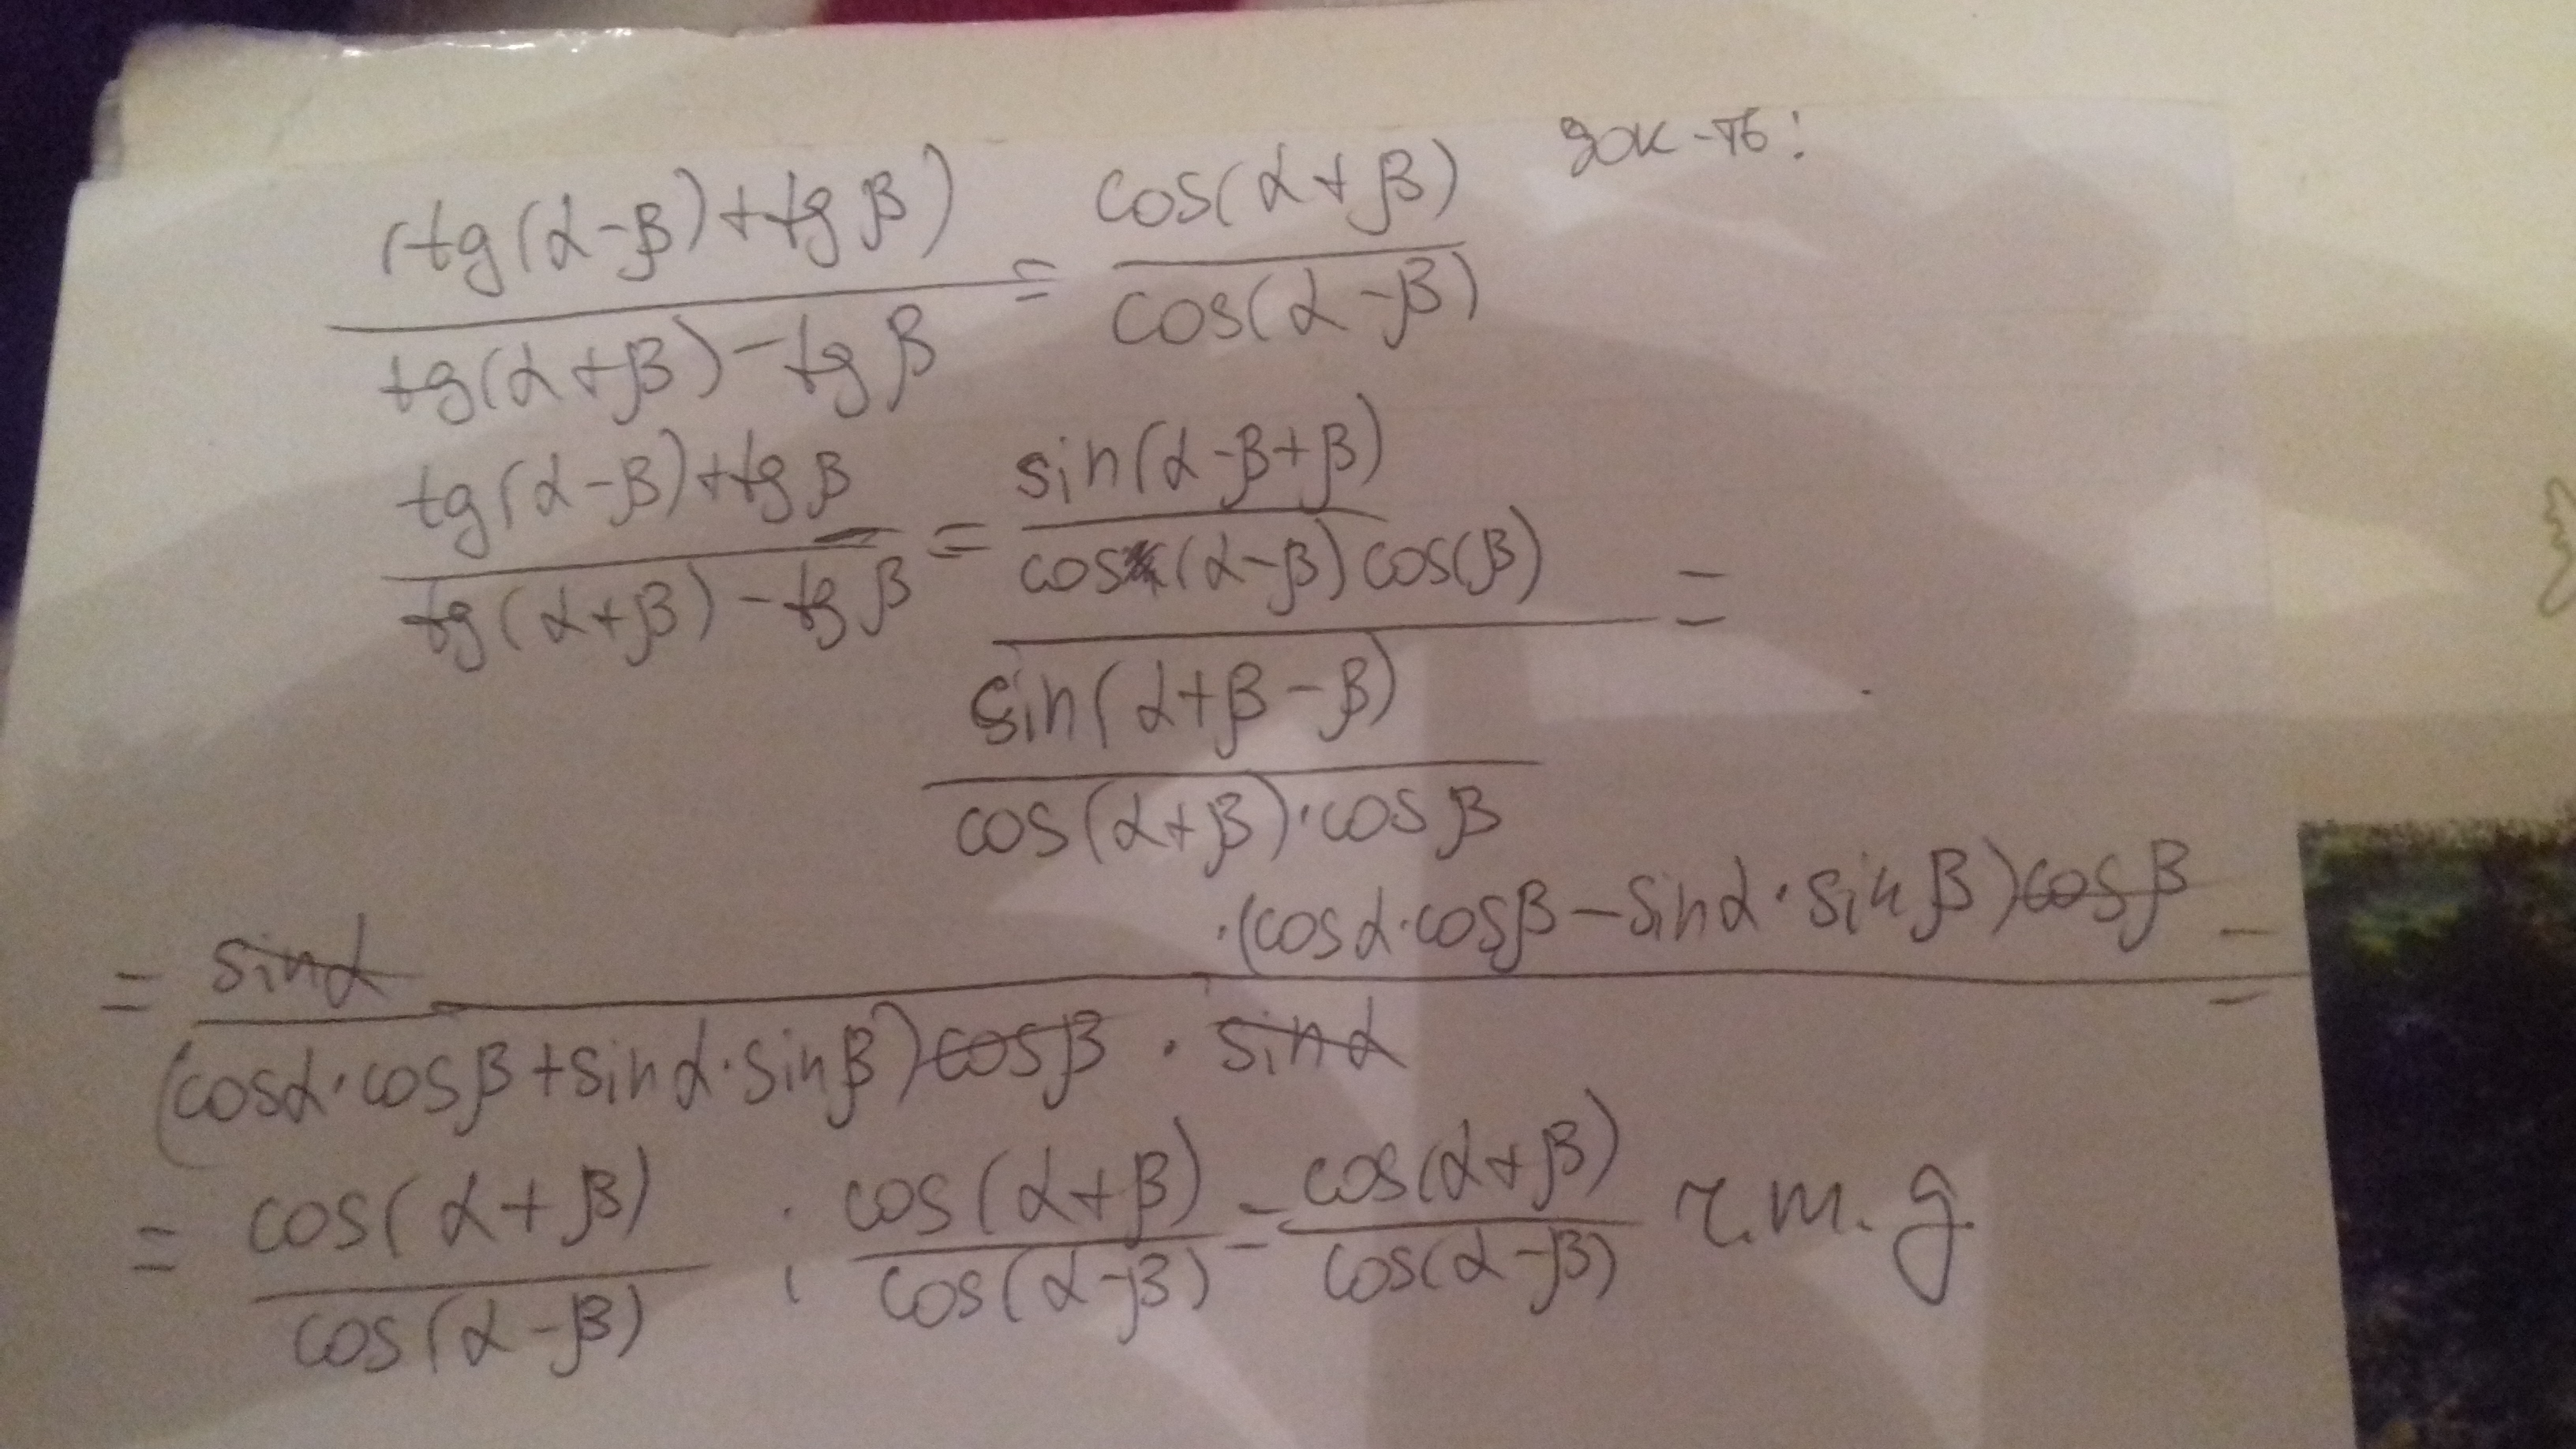 (tg(α-β)+tgβ) / tg(α+β)-tgβ = cos(α+β) / cos(α-β) док-ть:
tg(α-β)+tgβ / tg(α+β)-tgβ = sin(α-β+β) / cos(α-β)cos(β) / sin(α+β-β) / cos(α+β)·cosβ =
= sinα·(cosα·cosβ-sinα·sinβ)cosβ / (cosα·cosβ+sinα·sinβ)cosβ·sinα =
= cos(α+β) / cos(α-β) ; cos(α+β) / cos(α-β) = cos(α+β) / cos(α-β) ч.т.д